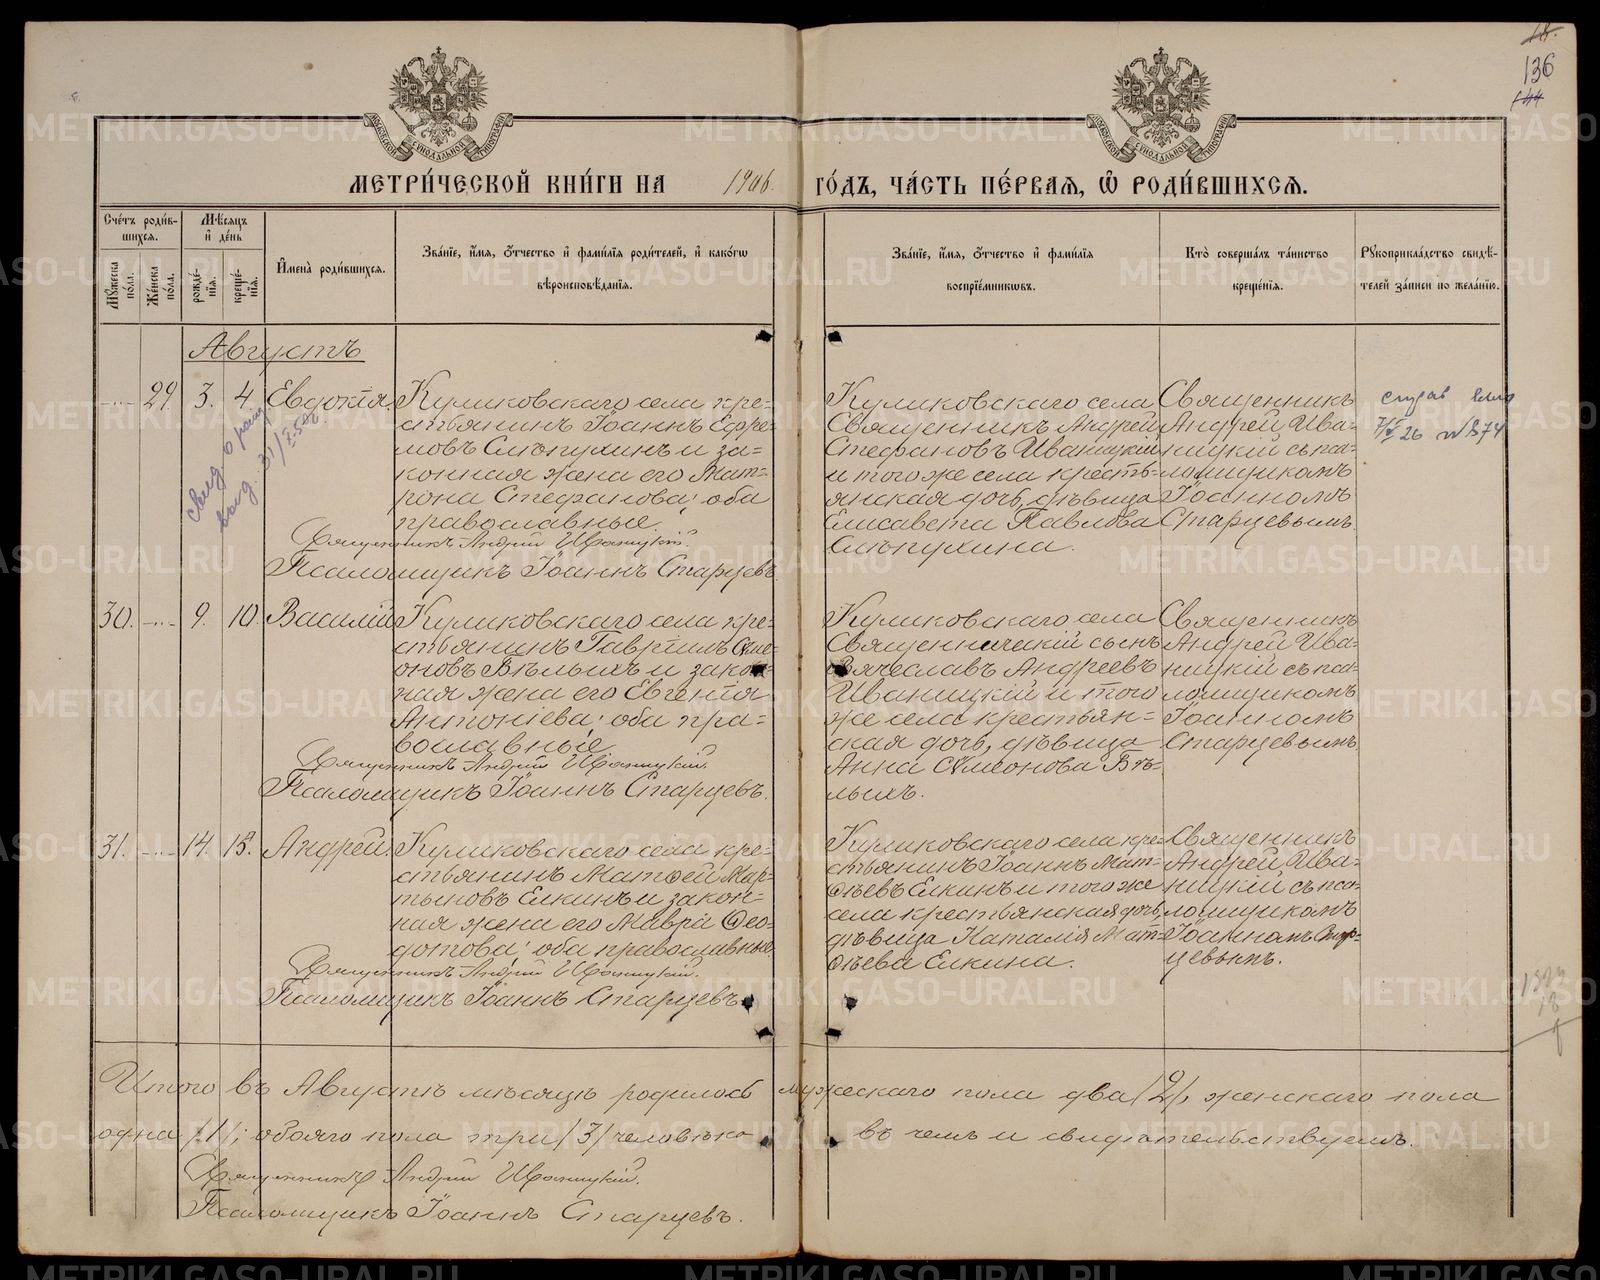 14.
136
144
МЕТРИ́ЧЕСКОЙ КНИ́ГИ НА 1906. ГО́ДЪ, ЧА́СТЬ ПЕ́РВАЯ, Ѡ РОДИ́ВШИХСЯ.
Сче́тъ роди́в-
шихся.
Мѣ́сяцъ
и де́нь
Му́жеска по́ла.
Же́нска по́ла.
рожде́-
нія.
креще́-
нія.
Имена̀ роди́вшихся.
Зва́ніе, и́мя, о́тчество и фами́лія роди́телей, и како́гѡ
вѣроисповѣ́данія.
Зва́ніе, и́мя, о́тчество и фами́лія
воспріе́мникѡвъ.
Кто̀ соверша́лъ та́инство
креще́нія.
Рукоприкла́дство свидѣ́-
телей за́писи по жела́нію.
Августъ
29. 3. 4. Евдокія.
Куликовскаго села кре-
стьянинъ Іоаннъ Ефре-
мовъ Слѣпухинъ и за-
конная жена его Мат-
рона Стефанова; оба
православные.
Священникъ Андрей Иваницкій.
Псаломщикъ Іоаннъ Старцевъ.
Куликовскаго села
Священникъ Андрей
Стефановъ Иваницкій
и того же села кресть-
янская дочь, дѣвица
Елисавета Павлова
Слѣпухина.
Священникъ
Андрей Ива-
ницкій съ пса-
ломщикомъ
Іоанномъ
Старцевымъ.
30. 9. 10. Василій
Куликовскаго села кре-
стьянинъ Гавріилъ Сѵме-
оновъ Бѣлыхъ и закон-
ная жена его Евгенія
Антоніева; оба пра-
вославные
Священникъ Андрей Иваницкій.
Псаломщикъ Іоаннъ Старцевъ.
Куликовскаго села
Священническій сынъ
Вячеславъ Андреевъ
Иваницкій и того
же села крестьян-
ская дочь, дѣвица
Анна Сѵмеонова Бѣ-
лыхъ.
Священникъ
Андрей Ива-
ницкій съ пса-
ломщикомъ
Іоанномъ
Старцевымъ.
31. 14. 18. Андрей.
Куликовскаго села кре-
стьянинъ Матѳей Мар-
тыновъ Елкинъ и закон-
ная жена его Мавра Ѳео-
дотова; оба православные.
Священникъ Андрей Иваницкій.
Псаломщикъ Іоаннъ Старцевъ.
Куликовскаго села кре-
стьянинъ Іоаннъ Мат-
ѳѣевъ Елкинъ и того же
села крестьянская дочь,
дѣвица Наталія Мат-
ѳѣева Елкина.
Священникъ
Андрей Ива-
ницкій съ пса-
ломщикомъ
Іоанномъ Стар-
цевымъ.
Итого въ Августѣ мѣсяцѣ родилось мужескаго пола два /2/, женскаго пола
одна /1/; обоего пола три /3/ человѣка въ чемъ и свидѣтельствуемъ.
Священникъ Андрей Иваницкій.
Псаломщикъ Іоаннъ Старцевъ.
METRIKI.GASO-URAL.RU